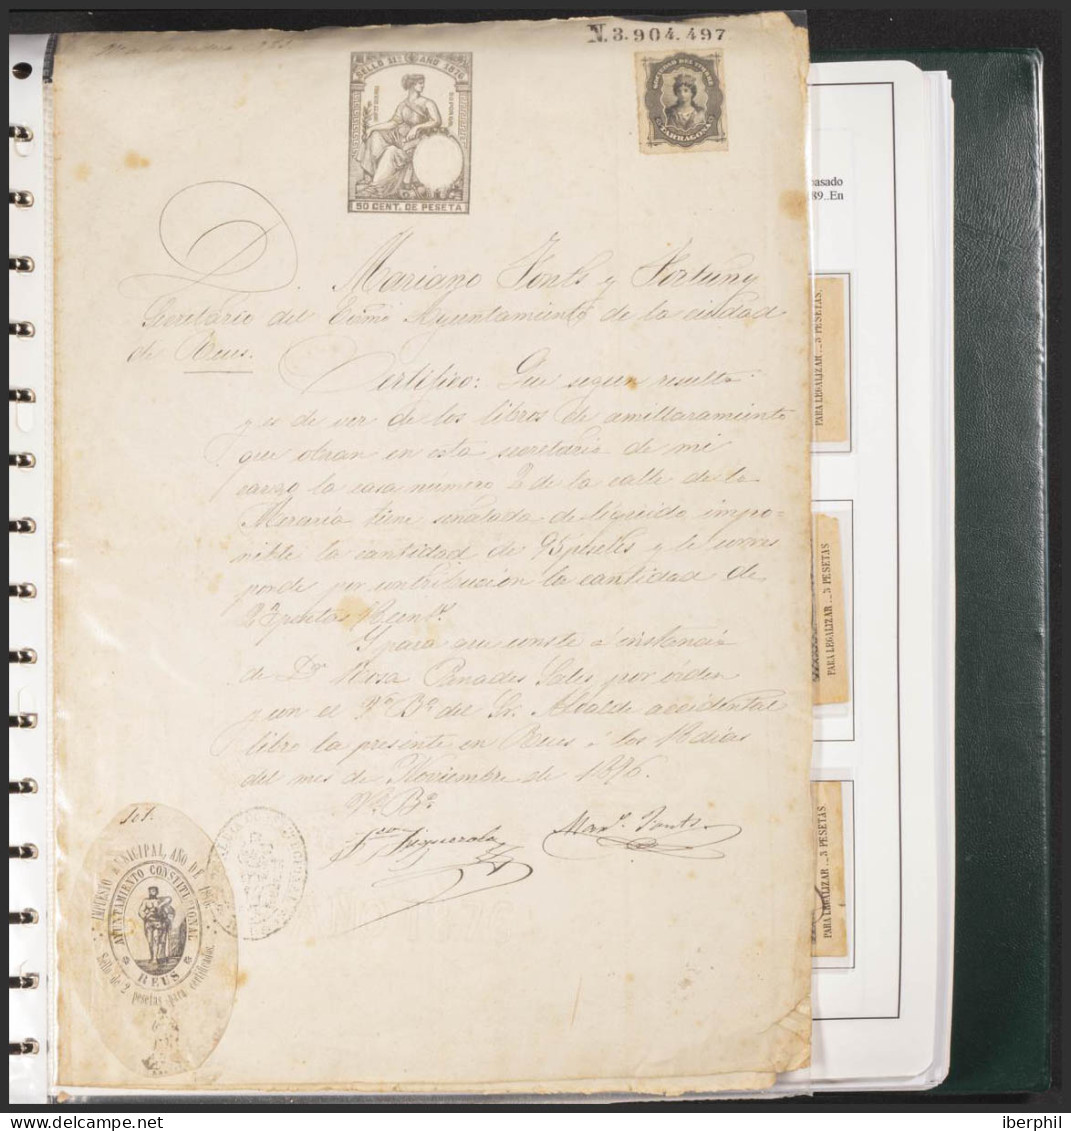 N.3.904.497
SELLO 11º AÑO 1876
50 CENT. DE PESETA
TARRAGONA
pasado
89_En
D. Mariano Fonts y Fortuny
Secretario del Exmo Ayuntamiento de la ciudad
de Reus.
Certifico: Que segun resulta
y es de ver de los libros de amillaramiento
que obran en esta secretaria de mi
cargo la casa numero 2 de la calle de la
tiene señalada de liquido impo-
nible la cantidad de 95 pesetas y le corres
ponde por contribucion la cantidad de
pesetas cent.
Y para que conste á instancia
de Dª Rosa Panades Sales por órden
y con el Vº Bº del Sr. Alcalde accidental
libro la presente en Reus á los 18 dias
del mes de Noviembre de 1876.
Vº Bº
Figuerola
Marº Fonts
IMPUESTO MUNICIPAL, AÑO DE 1876
AYUNTAMIENTO CONSTITUCIONAL
REUS
Sello de 2 pesetas para certificados.
PARA LEGALIZAR...3 PESETAS.
PARA LEGALIZAR...3 PESETAS
PARA LEGALIZAR...3 PESETAS.
iberphil